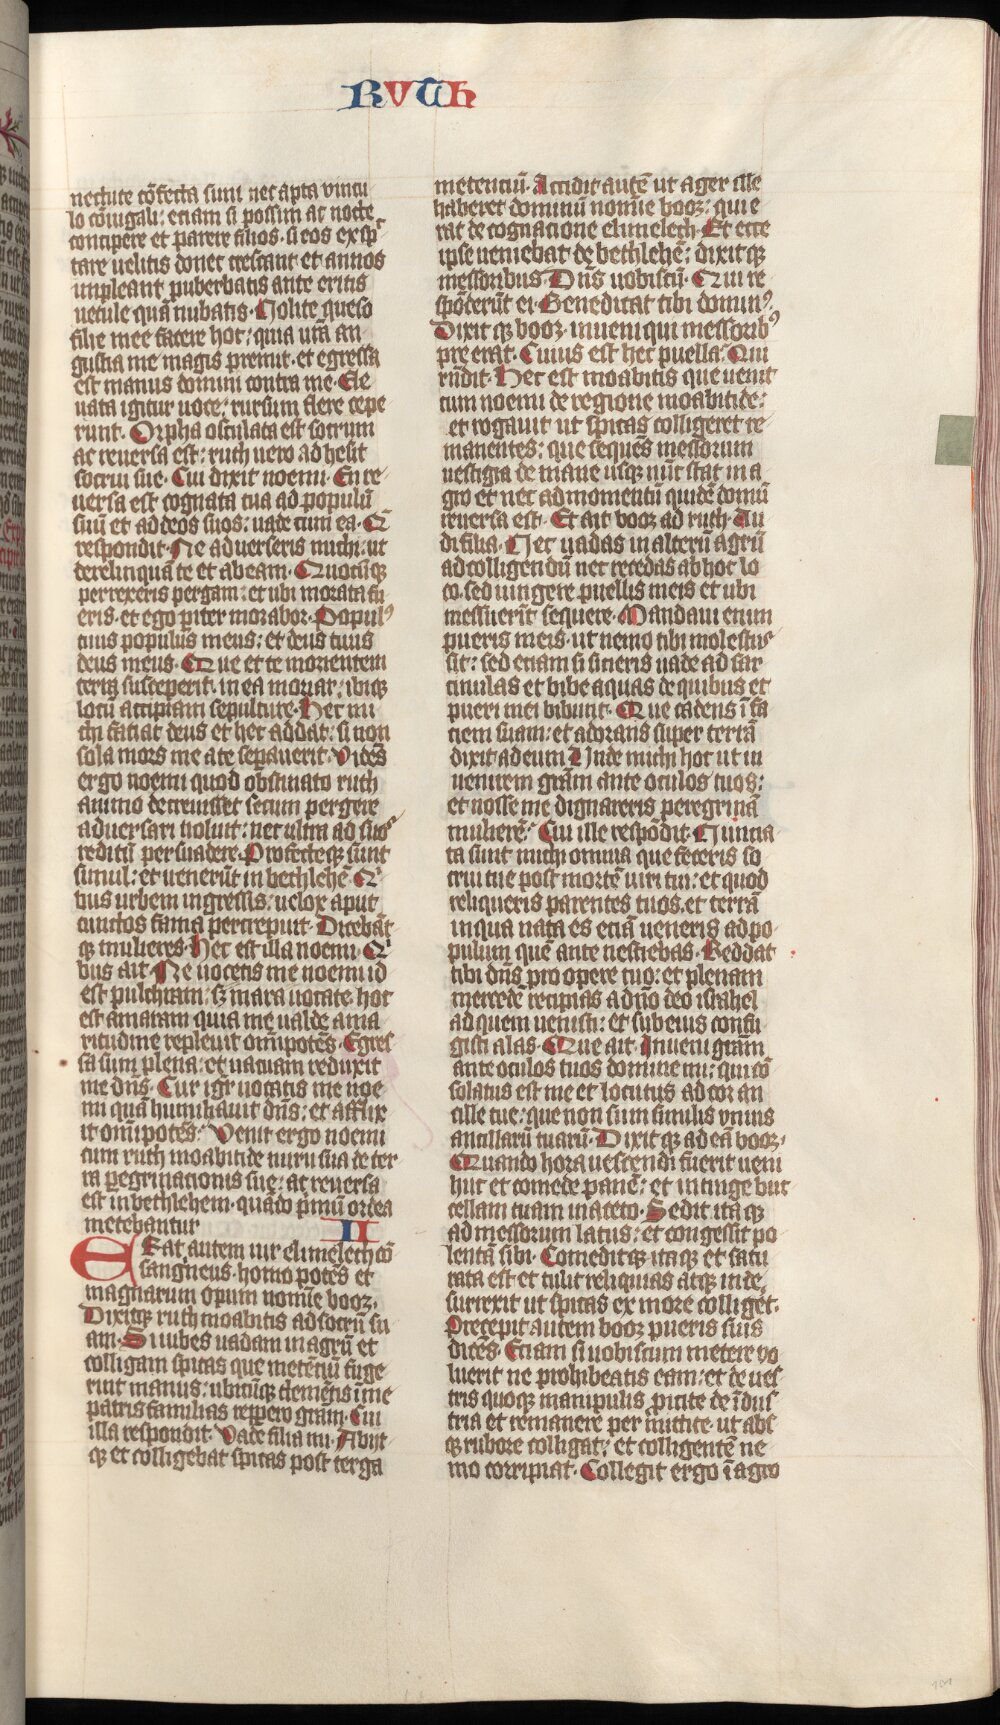 RUTH
nectute cōfecta sum nec apta vincu
lo cōiugali: etiam si possim ac nocte
concipere et parere filios. si eos exsp̄c
tare uelitis donec crescant et annos
impleant pubertatis ante eritis
uetule quā nubatis. Nolite queso
filie mee facere hoc: quia urā an
gustia me magis premit. et egressa
est manus domini contra me. Ele
uata igitur uoce: rursum flere cepe
runt. Orpha osculata est socrum
ac reuersa est: ruth uero adhesit
socrui sue. Cui dixit noemi. En re
uersa est cognata tua ad populū
suū et ad deos suos: uade cum ea. Q̄
respondit. Ne aduerseris michi. ut
derelinquā te et abeam. Quocūq̨
perrexeris pergam: et ubi morata fu
eris. et ego piter morabor. Populꝰ
tuus populus meus: et deus tuus
deus meus. Que et te morientem
terra susceperit. in ea moriar: ibiq̨
locū accipiam sepulture. Hec mi
chi faciat deus et hec addat: si non
sola mors me a te separauerit. Vidēs
ergo noemi quod obstinato ruth
animo decreuisset secum pergere
aduersari noluit: nec ultra ad suos
reditū persuadere. Profecteq̨ sunt
simul: et uenerūt in bethlehē. Qi
bus urbem ingressis: uelox aput
cunctos fama percrepuit. Dicebāt
q̨ mulieres. Hec est illa noemi. Qi
bus ait. Ne uocetis me noemi id
est pulchram: sꝫ mara uocate hoc
est amaram quia me ualde ama
ritudine repleuit omīpotēs. Egres
sa sum plena: et uacuam reduxit
me dn̄s. Cur igr̄ uocatis me noe
mi quā humiliauit dn̄s: et afflix
it omīpotēs: Venit ergo noemi
cum ruth moabitide nuru sua de ter
ra pegrinationis sue: ac reuersa
est in bethlehem. quādo p̄mū ordea
metebantur II
Erat autem uir elimelech cō
sangneus. homo potēs et
magnarum opum nomīe booz.
Dixitq̨ ruth moabitis ad socrū su
am. Si iubes uadam in agrū et
colligam spicas que metētiū fuge
rint manus: ubicūq̨ clemētis ī me
patris familias reppero grām. Cui
illa respondit. Vade filia mi. Abijt
q̨ et colligebat spicas post terga
metentiū. Accidit autē ut ager ille
haberet dominū nomīe booz: qui e
rat de cognatione elimelech. Et ecce
ipse ueniebat de bethlehē: dixitq̨
messoribus. Dn̄s uobiscū. Qui re
spōderūt ei. Benedicat tibi dominꝰ.
Dixit q̨ booz. iuueni qui messoribꝰ
pre erat. Cuius est hec puella. Qui
rūdit. Hec est moabitis que uenit
cum noemi de regione moabitide:
et rogauit ut spicas colligeret re
manentes: que sequēs messorum
uestigia de mane usq̨ nūc stat in a
gro et nec ad momentū quidē domū
reuersa est. Et ait booz ad ruth. Au
di filia. Nec uadas in alterū agrū
ad colligendū nec recedas ab hoc lo
co. sed iungere puellis meis et ubi
messuerīt sequere. Mandaui enim
pueris meis. ut nemo tibi molestus
sit: sed etiam si sitieris uade ad sar
cinulas et bibe aquas de quibus et
pueri mei bibunt. Que cadens ī fa
ciem suam: et adorans super terrā
dixit ad eum Unde michi hoc ut in
uenirem grām ante oculos tuos:
et nosse me dignareris peregrinā
mulierē. Cui ille respōdit. Nuncia
ta sunt michi omnia que feceris so
crui tue post mortē uiri tui: et quod
reliqueris parentes tuos. et terrā
in qua nata es etiā ueneris ad po
pulum quē ante nesciebas. Reddat
tibi dn̄s pro opere tuo: et plenam
mercedē recipias a dn̄o deo israhel
ad quem uenisti: et sub eius confu
gisti alas. Que ait. Inueni grām
ante oculos tuos domine mi: qui cō
solatus est me et locutus ad cor an
cille tue: que non sum similis vnius
ancillarū tuarū. Dixit q̨ ad eā booz.
Quando hora uescendi fuerit ueni
huc et comede panē: et intinge buc
cellam tuam in aceto. Sedit itaq̨
ad messorum latus: et congessit po
lentā sibi. Comeditq̨ itaq̨ et satu
rata est et tulit reliquias atq̨ inde
surrexit ut spicas ex more colliget.
Precepit autem booz pueris suis
dicēs. Etiam si uobiscum metere vo
luerit ne prohibeatis eam: et de ues
tris quoq̨ manipulis picite de īdus
tria et remanere per mittite. ut abs
q̨ rubore colligat: et colligentē ne
mo corripiat. Collegit ergo ī agro